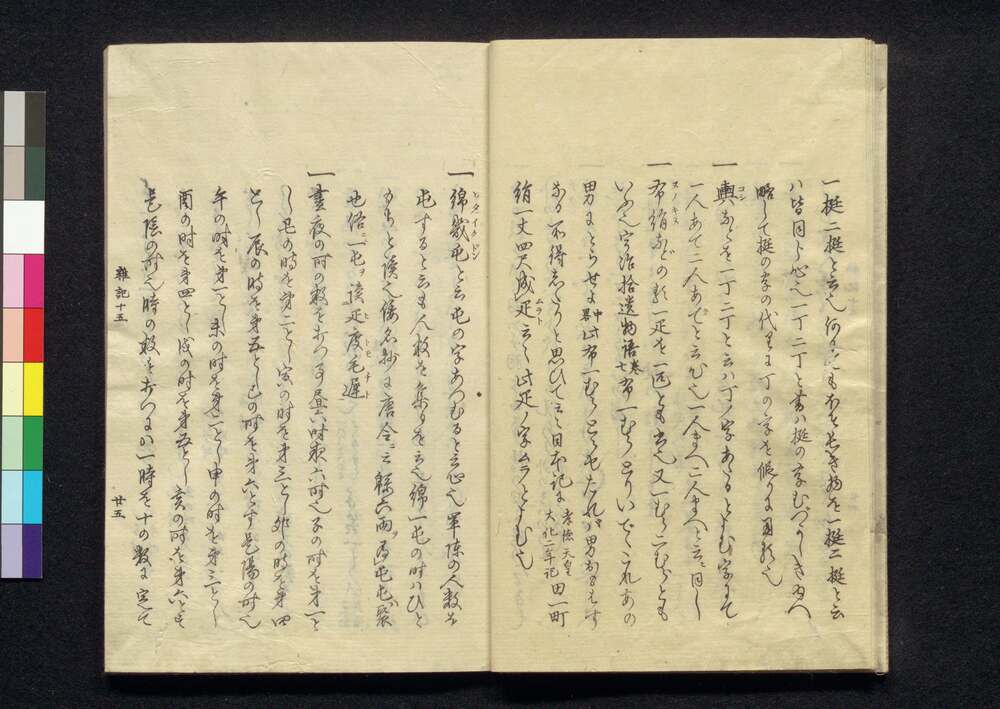 一挺二挺と云也何にても永き長き物を一挺二挺と云
ハ皆同し心也一丁二丁と書ハ挺の字むづかしきゆへ
略して挺の字の代りに丁の字を仮りに用る也
一輿などを一丁二丁と云ハ丁ノ字あたるとよむ字にて
コシ
一人あて二人あてと云心也一人まへ二人まへと云ニ同し
一布絹などの類一疋を一匹とも書也又一むら二むらとも
ヌノキヌ
いふ也宇治拾遺物語巻七布一むらとりいでゝこれあの
男にとらせよ中畧此布一むらとらせたれバ男おもはす
なる不得したりと思ひて云々日本記に孝徳天皇大化二年記田一町
絹一丈四尺成疋云々此疋ノ字ムラとよむ也
ムラト
一綿幾屯と云屯の字あつむると云心也軍陣の人数を
ワタイクトン
屯すると云も人数を集るを云也綿一屯の時ハひと
もちと読也倭名鈔に唐令ニ云綿六両為屯屯聚
也俗一屯ヲ読疋度毛遅
ニハ ヒトモチト
一昼夜の時の数を打つ事昼六時夜六時也子の時を第一と
し丑の時を第二とし寅の時を第三とし卯の時を第四
とし辰の時を第五とし巳の時を第六とす是陽の時也
午の時を第一とし未の時を第二とし申の時を第三とし
酉の時を第四とし戌の時を第五とし亥の時を第六とす
是陰の時也時の数を打つにハ一時を十の数に定て
雑記十五
廿五